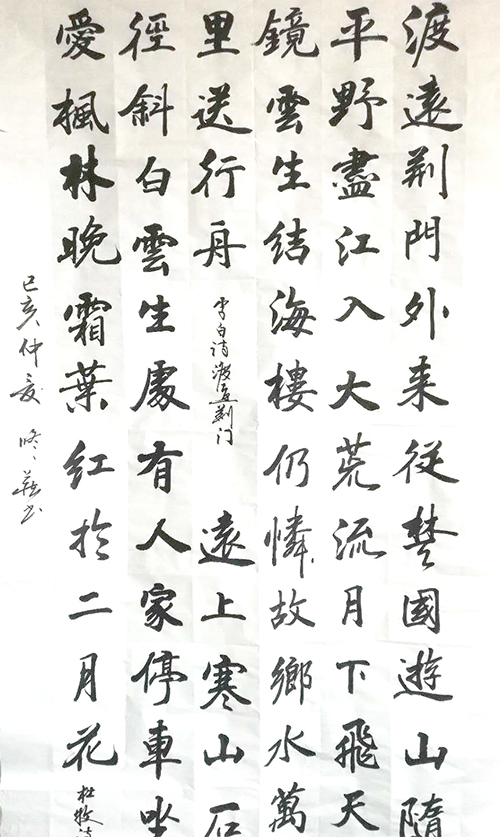 渡遠荆門外来從楚國遊山隨
平野盡江入大荒流月下飛天
鏡雲生结海樓仍憐故鄉水萬
里送行舟 李白诗渡远荆门 遠上寒山石
徑斜白雲生處有人家停車坐
愛楓林晚霜葉红於二月花 杜牧诗
己亥仲夏